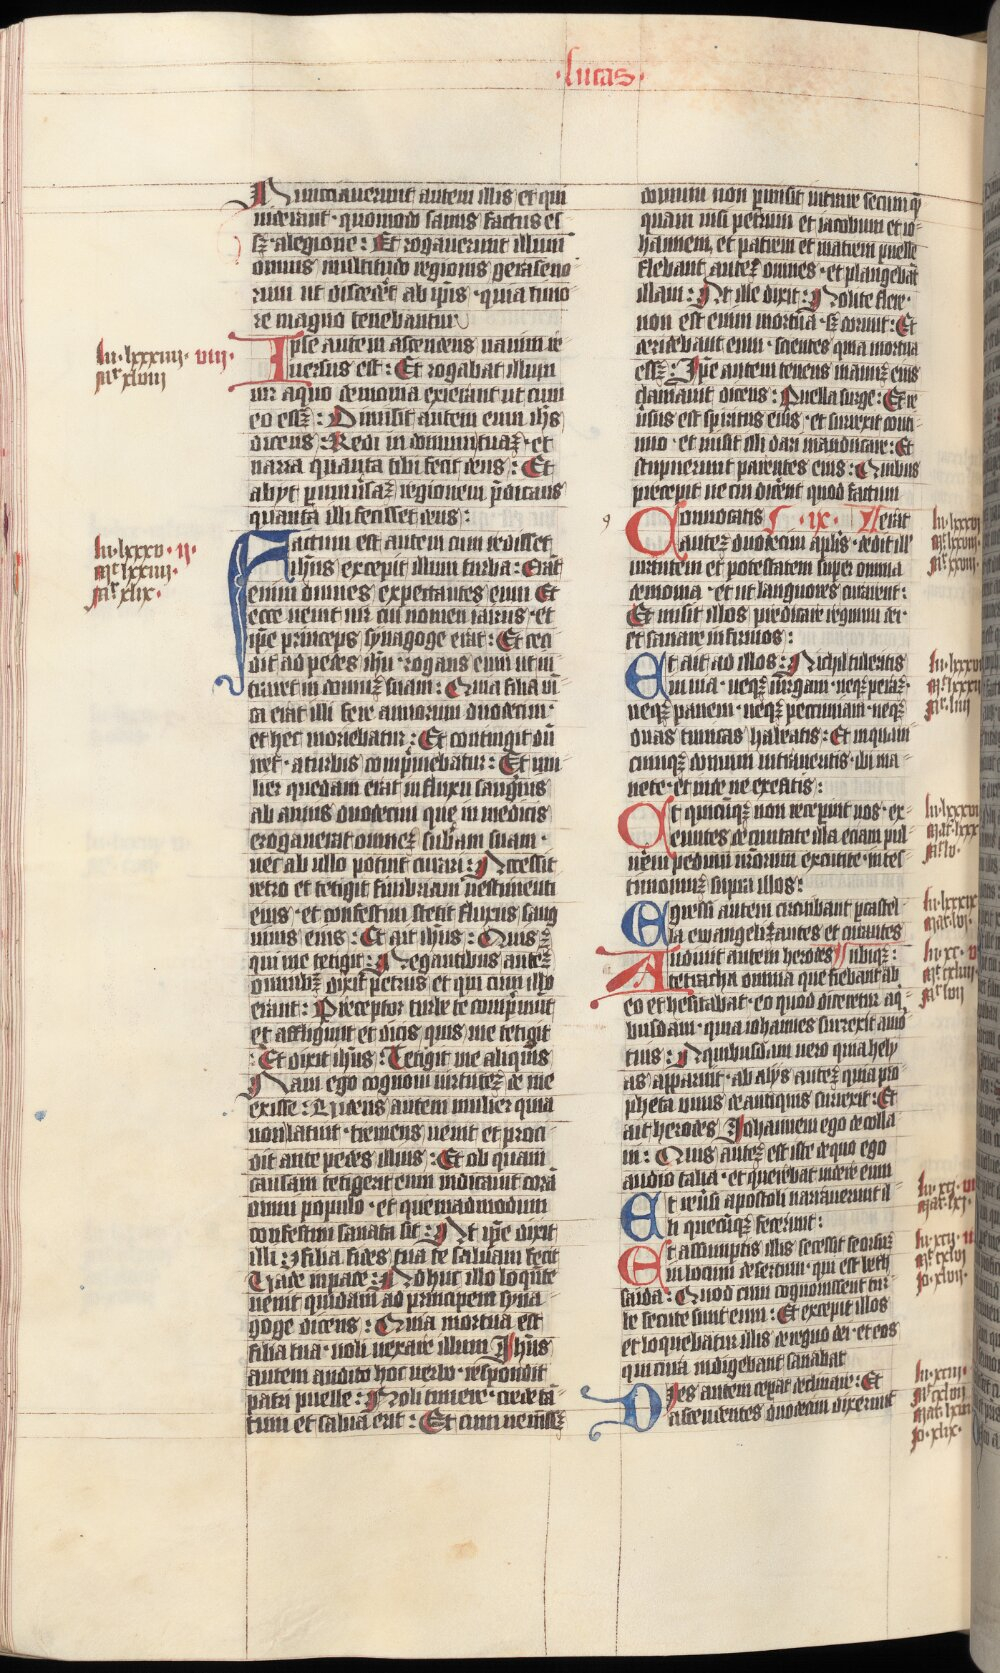 ·lucas·
Nunciauerunt autem illis et qui
uiderant · quomodo sanus factus es
sꝫ · alegione : Et rogauerunt illum
omnis multitudo regionis geraseno
rum ut discedēt ab ip̄is · quia timo
re magno tenebantur
lu · lxxxiiij · viij ·
mr̄ xlviij
Ipse autem ascendens nauim re
uersus est : Et rogabat illum
uir aquo demonia exierant ut cum
eo essꝫ : Dimisit autem eum ih̄s
dicens : Redi in domum tuaꝫ · et
narra quanta tibi fecit deus : Et
abyt p uniu̓saꝫ regionem p̄dicans
quanta illi fecisset deus :
lu · lxxxv · ij ·
mt̄ lxxiiij ·
mr̄ xlix ·
Factum est autem cum redisset
ih̄us excepit illum turba : Erāt
enim omnes expectantes eum Et
ecce uenit uir cui nomen iairus · et
ip̄e princeps synagoge erat : Et ceci
dit ad pedes ih̄u · rogans eum ut in
traret in domuꝫ suam : Quia filia un̄i
ca erat illi fere annorum duodecim ·
et hec moriebatur : Et contingit dū
iret · aturbis comp̄mebatur : Et mu
lier quedam erat in fluxu sangīus
ab annis duodecim que in medicos
erogauerat omneꝫ sub̄am suam ·
nec ab ullo potuit curari : Accessit
retro et tetigit fimbriam uestimenti
eius · et confestim stetit fluxus sang
uinis eius : Et ait ih̄us : Quis ꝫ
qui me tetigit : Negantibus auteꝫ
omnibꝫ dixit petrus et qui cum illo
erant : Preceptor turbe te comp̄munt
et affligunt et dicis quis me tetigit
: Et dixit ih̄us : Tetigit me aliquis
Nam ego cognoui uirtuteꝫ de me
exisse : Uidens autem mulier quia
non latuit · tremens uenit et proci
dit ante pedes illius : Et ob quam
causam tetigerit eum indicauit corā
omni populo · et quemadmodum
confestim sanata sit : At ip̄e dixit
illi : filia fides tua te saluam fecit
Uade in pace : Adhuc illo loquēte
uenit quidam ad principem syna
goge dicens : Quia mortua est
filia tua · noli uexare illum Ih̄us
autem audito hoc uerbo · respondit
patri puelle : Noli timere · crede tā
tum et salua erit : Et cum uenissꝫ
domum non p̄misit intrare secum q̄
quam nisi petrum et iacobum et io
hannem · et patrem et matrem puelle
Flebant auteꝫ omnes · et plangebāt
illam : At ille dixit : Nolite flere ·
non est enim mortua · sꝫ dormit : Et
deridebant eum · scientes quia mortua
essꝫ : Ip̄e autem tenens manuꝫ eius
clamauit dicens : Puella surge : Et re
u̓sus est spiritus eius · et surrexit conti
nuo · et iussit illi dari manducare : Et
stupuerunt parentes eius : Quibus
precepit ne cui dicērt quod factum
Conuocatis · ix · erat
auteꝫ duodecim aplīs · dedit ill̄
uirtutem et potestatem super omnia
demonia · et ut languores curarent :
Et misit illos predicare regnum dei ·
et sanare infirmos :
Et ait ad illos : Nichil tuleritis
in uia · neqꝫ uirgam · neqꝫ peraꝫ ·
neqꝫ panem · neqꝫ pecuniam · neqꝫ
duas tunicas habeatis : Et in quam
cumqꝫ domum intraueritis · ibi ma
nete · et inde ne exeatis :
Et quicūqꝫ non receperint uos · ex
euntes de ciuitate illa etiam pul
uerem pedum urōrum excutite · in tes
timoniuꝫ supra illos :
Egressi autem circuibant p castel
la ewangelizantes et curantes
Audiuit autem herodes ubiqꝫ :
tetracha omnia que fiebant ab
eo et hesitabat · eo quod diceretur aq̄
busdam · quia iohannes surrexit amō
tuis : Aquibusdam uero quia hely
as apparuit · ab alys auteꝫ quia pro
pheta unus de antiquis surrexit : Et
ait herodes Iohannem ego decolla
ui : Quis auteꝫ est iste dequo ego
audio talia · et querebat uidere eum
Et reu̓si apostoli narrauerunt il
li quecūqꝫ fecerunt :
Et assumptis illis secessit seorsuꝫ
in locum desertum · qui est beth
saida : Quod cum cognouissent tur
be secute sunt eum : Et excepit illos
et loquebatur illis de regno dei · et eos
qui cura indigebant sanabat
Dies autem cepat declinare : Et
accedentes duodecim dixerunt